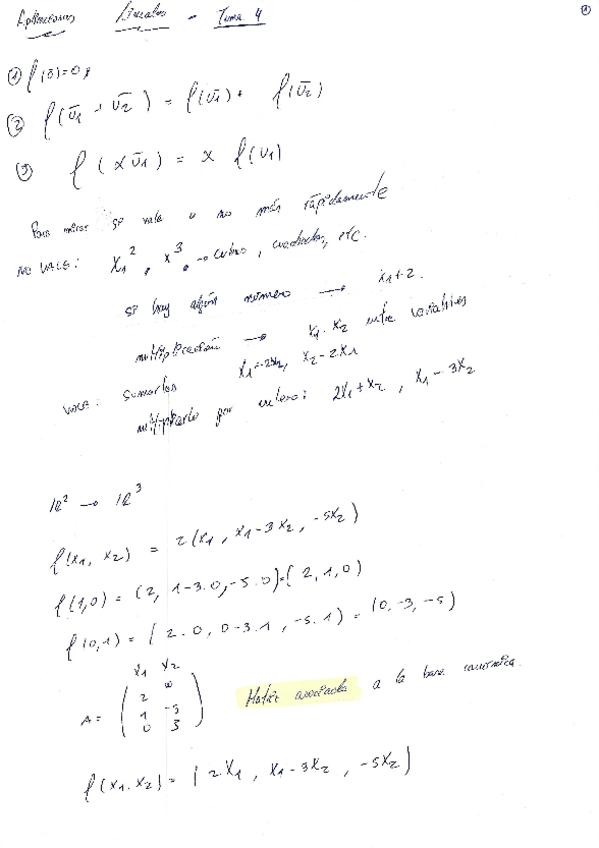 Aplicaciones Lineales - Tema 4
① f(ō)=0
② f(v̄1 + v̄2) = f(v̄1) + f(v̄2)
③ f(αv̄1) = α f(v1)
Para mirar si vale o no más rápidamente
NO VALE: x1², x³. → cubos, cuadrados, etc.
si hay algún número → x1+2.
multiplicación → x1·x2 entre variables
VALE: sumarlos x1-2x2, x2-2x1
multiplicarlo por entero: 2x1+x2, x1-3x2
ℝ² → ℝ³
f(x1, x2) = 2(x1, x1-3x2, -5x2)
f(1,0) = (2, 1-3.0, -5.0)=(2,1,0)
f(0,1) = (2.0, 0-3.1, -5.1) = (0,-3,-5)
x1 x2
2 0
A= 1 -3
0 5
Matriz asociada a la base canónica.
f(x1.x2)= (2x1, x1-3x2, -5x2)